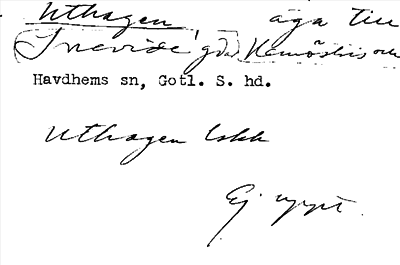 Uthagen, äga till
Snevide gdar Hemöstris och
Havdhems sn, Gotl. S. hd.
Uthagen lokk
Ej uppt.